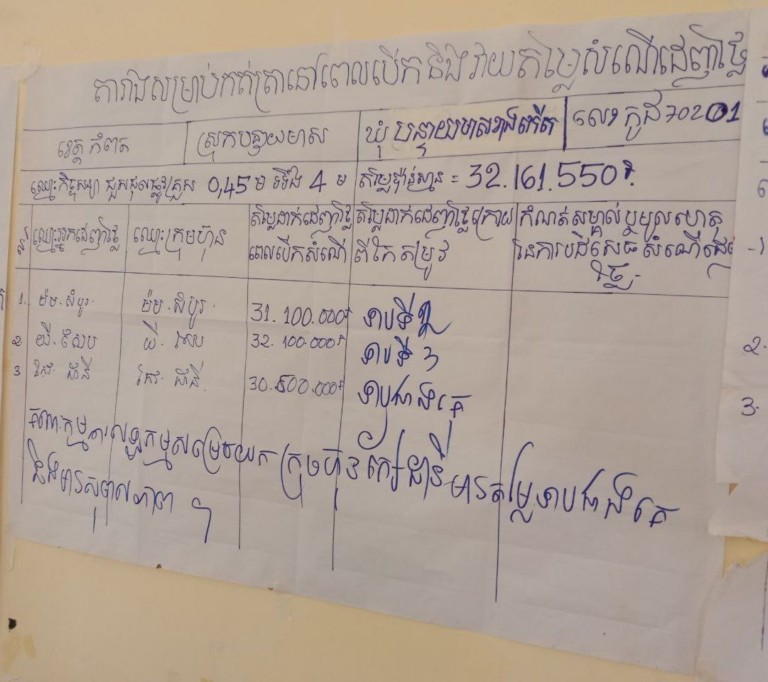 តារាងសម្រាប់កត់ត្រានៅពេលបើក និងវាយតម្លៃសំណើដេញថ្លៃ
ខេត្ត កំពត ស្រុកបន្ទាយមាស ឃុំ បន្ទាយមាសខាងកើត លេខកូដ 70201
ឈ្មោះកិច្ចសន្យា ជួសជុលផ្លូវគ្រួស 0,45ម ទទឹង 4 ម តម្លៃប៉ាន់ស្មាន = 32.161.550៛
ឈ្មោះអ្នកដេញថ្លៃ ឈ្មោះក្រុមហ៊ុន តម្លៃដាក់ដេញថ្លៃ តម្លៃដាក់ដេញថ្លៃក្រោយ កំណត់សម្គាល់ ឬមូលហេតុ
ពេលបើកសំណើ ពីកែតម្រូវ នៃការបដិសេធសំណើដេញ
ថ្លៃ
1. ម៉ម សំបូរ ម៉ម សំបូរ 31.100.000៛ ទាបទី 2
2 យី សែប យី សែប 32.100.000៛ ទាបទី 3
3 កែវ ដានី កែវ ដានី 30.800.000៛ ទាបជាងគេ
គណៈកម្មការលទ្ធកម្មសម្រេចយក ក្រុមហ៊ុន កែវ ដានី មានតម្លៃទាបជាងគេ
និងមានសុពលភាព ។
2.
3.